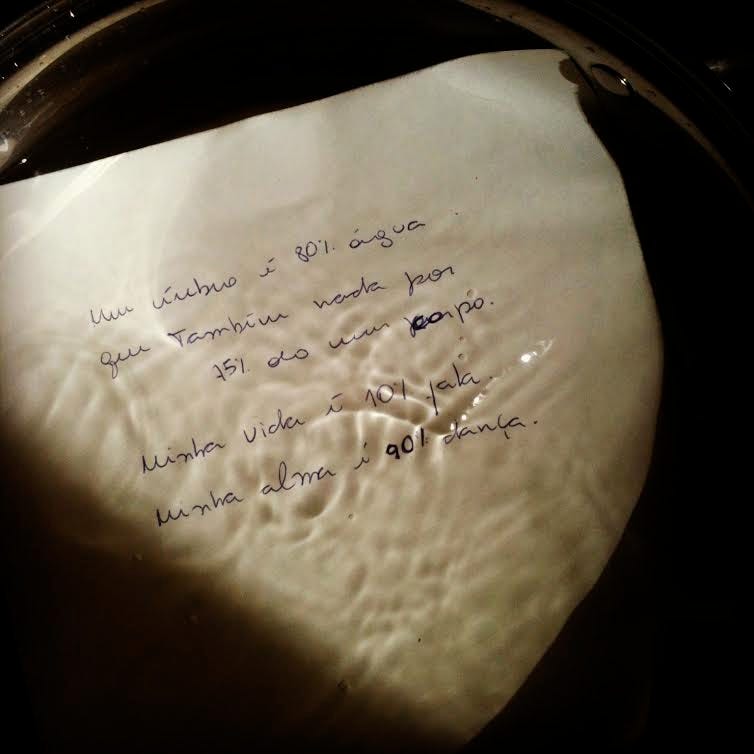 Meu cérebro é 80% água
que também nada por
75% do meu corpo.
Minha vida é 10% fala.
Minha alma é 90% dança.